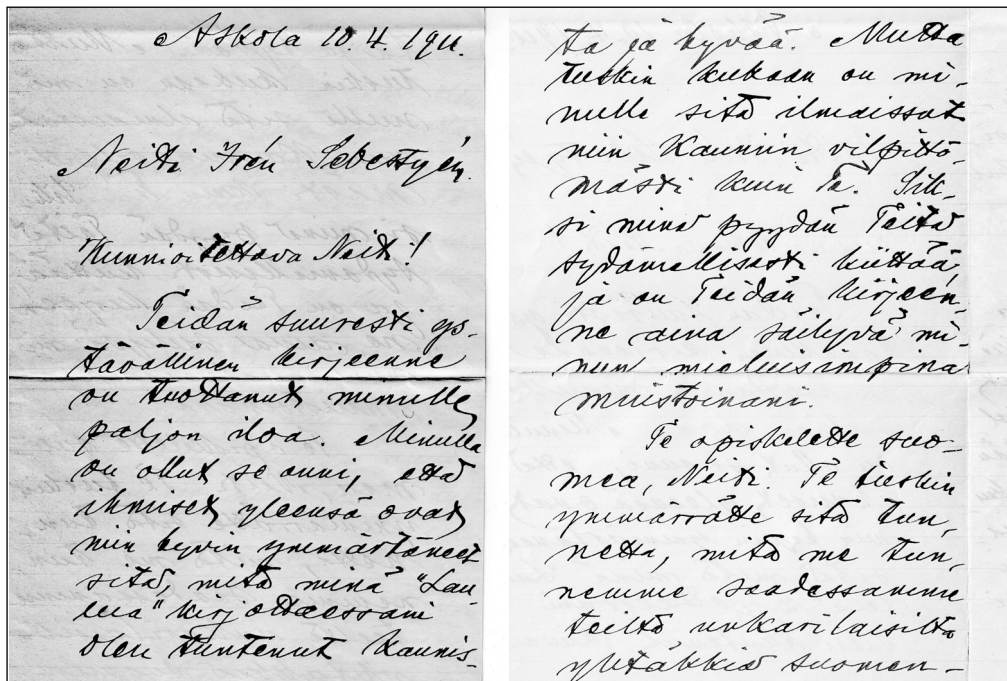 Askola 10.4. 1911.
Neiti Irén Sebestyén.
Kunnioitettava Neiti!
Teidän suuresti ys-
tävällinen kirjeenne
on tuottanut minulle
paljon iloa. Minulla
on ollut se onni, että
ihmiset yleensä ovat
niin hyvin ymmärtäneet
sitä, mitä minä "Lau-
lua" kirjottaessani
olen tuntenut kaunis-
ta ja hyvää. Mutta
tuskin kukaan on mi-
nulle sitä ilmaissut
niin kauniin vilpittö-
mästi kuin Te. Sik-
si minä pyydän Teitä
sydämellisesti kiittää,
ja on Teidän kirjeen-
ne aina säilyvä mi-
nun mieluisimpina
muistoinani.
Te opiskelette suo-
mea, Neiti. Te tuskin
ymmärrätte sitä tun-
netta, mitä me tun-
nemme saadessamme
teiltä unkarilaisilta
yhtäkkiä suomen-